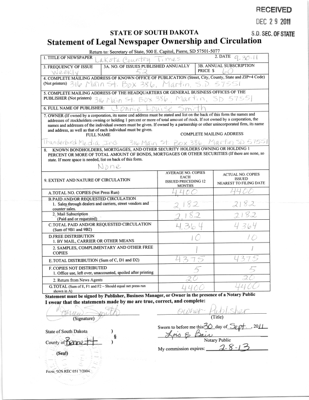 RECEIVED
DEC 29 2011
S.D. SEC. OF STATE
STATE OF SOUTH DAKOTA
Statement of Legal Newspaper Ownership and Circulation
Return to: Secretary of State, 500 E. Capitol, Pierre, SD 57501-5077
1. TITLE OF NEWSPAPER Lakota Country Times
2. DATE
3. FREQUENCY OF ISSUE weekly
3A. NO. OF ISSUES PUBLISHED ANNUALLY 52
3B. ANNUAL SUBSCRIPTION PRICE $
4. COMPLETE MAILING ADDRESS OF KNOWN OFFICE OF PUBLICATION (Street, City, County, State and ZIP+4 Code)
(Not printers)
5. COMPLETE MAILING ADDRESS OF THE HEADQUARTERS OR GENERAL BUSINESS OFFICES OF THE
PUBLISHER (Not printer)
6. FULL NAME OF PUBLISHER: Connie Louise Smith
7. OWNER (If owned by a corporation, its name and address must be stated and list on the back of this form the names and
addresses of stockholders owning or holding 1 percent or more of total amount of stock. If not owned by a corporation, the
names and addresses of the individual owners must be given. If owned by a partnership or other unincorporated firm, its name
and address, as well as that of each individual must be given.
FULL NAME COMPLETE MAILING ADDRESS
8. KNOWN BONDHOLDERS, MORTGAGES, AND OTHER SECURITY HOLDERS OWNING OR HOLDING 1
PERCENT OR MORE OF TOTAL AMOUNT OF BONDS, MORTGAGES OR OTHER SECURITIES (If there are none, so
state. If more space is needed, list on back of this form.
None
9. EXTENT AND NATURE OF CIRCULATION
AVERAGE NO. COPIES EACH ISSUED PRECEDING 12 MONTHS
ACTUAL NO. COPIES ISSUED NEAREST TO FILING DATE
A. TOTAL NO. COPIES (Net Press Run) 4400 4400
B. PAID AND/OR REQUESTED CIRCULATION
1. Sales through dealers and carriers, street vendors and
counter sales. 2182 2182
2. Mail Subscription
(Paid and or requested) 2182 2182
C. TOTAL PAID AND/OR REQUESTED CIRCULATION
(Sum of 9B1 and 9B2) 4364 4364
D. FREE DISTRIBUTION
1. BY MAIL, CARRIER OR OTHER MEANS 10 10
2. SAMPLES, COMPLIMENTARY AND OTHER FREE
COPIES 1 1
E. TOTAL DISTRIBUTION (Sum of C, D1 and D2) 4375 4375
F. COPIES NOT DISTRIBUTED
1. Office use, left over, unaccounted, spoiled after printing 5 5
2. Return from News Agents 20 20
G. TOTAL (Sum of E, F1 and F2 - Should equal net press run
shown in A) 4400 4400
Statement must be signed by Publisher, Business Manager, or Owner in the presence of a Notary Public
I swear that the statements made by me are true, correct, and complete:
(Signature) (Title)
State of South Dakota )
§
County of Bennett )
(Seal)
Sworn to before me this 30 day of Sept 2011
Notary Public
My commission expires: 2-8-13